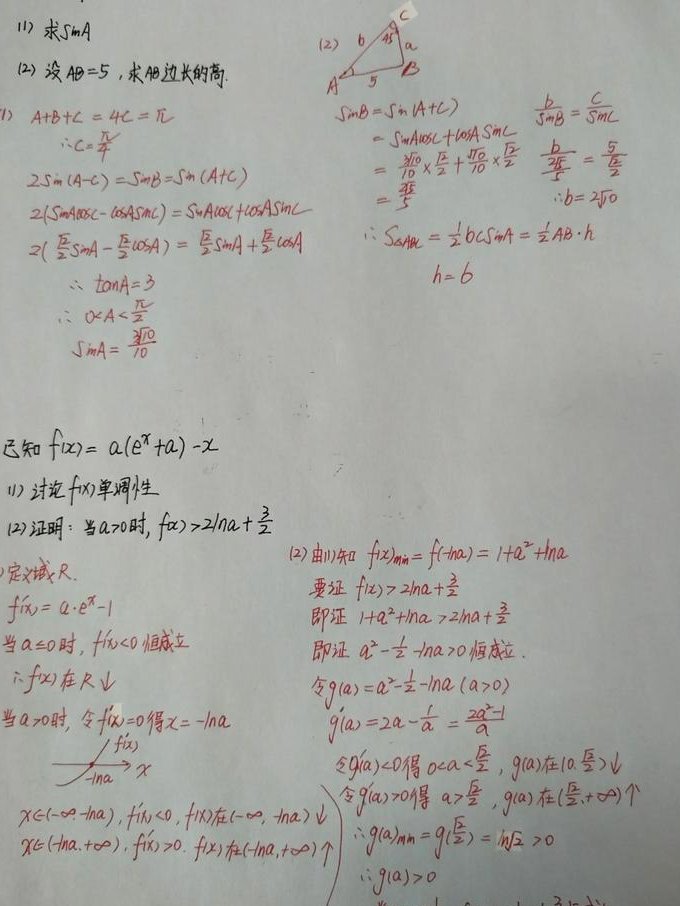 (1) 求sinA
(2) 设AB=5，求AB边长的高.
1) A+B+C = 4C = π
∴C=π/4
2sin(A-C)=sinB=sin(A+C)
2(sinAcosC-cosAsinC)=sinAcosC+cosAsinC
2(√2/2 sinA-√2/2 cosA) = √2/2 sinA+√2/2 cosA
∴ tanA=3
∴ 0<A<π/2
sinA= 3√10/10
(2)
C
b
45°
a
A
5
B
sinB=sin(A+C)
= sinAcosC+cosAsinC
= 3√10/10 × √2/2 + √10/10 × √2/2
= 2√5/5
b/sinB = c/sinC
b/(2√5/5) = 5/(√2/2)
∴b=2√10
∴ S△ABC = 1/2 bcsinA = 1/2 AB·h
h=6
已知 f(x)= a(eˣ+a)-x
(1) 讨论f(x)单调性
(2)证明：当a>0时, f(x)>2lna+3/2
)定义域R.
f'(x)= a·eˣ-1
当a≤0时, f'(x)<0恒成立
∴f(x)在R↓
当a>0时, 令f'(x)=0得x=-lna
f'(x)
-lna
x
x∈(-∞,-lna), f'(x)<0, f(x)在(-∞,-lna)↓
x∈(-lna,+∞), f'(x)>0. f(x)在(-lna,+∞)↑
(2) 由(1)知 f(x)min=f(-lna)=1+a²+lna
要证 f(x)>2lna+3/2
即证 1+a²+lna>2lna+3/2
即证 a²-1/2-lna>0恒成立.
令g(a)=a²-1/2-lna (a>0)
g'(a)=2a-1/a = (2a²-1)/a
令g'(a)<0得 0<a<√2/2, g(a)在(0,√2/2)↓
令g'(a)>0得 a>√2/2, g(a)在(√2/2,+∞)↑
∴g(a)min=g(√2/2)=ln√2>0
∴g(a)>0